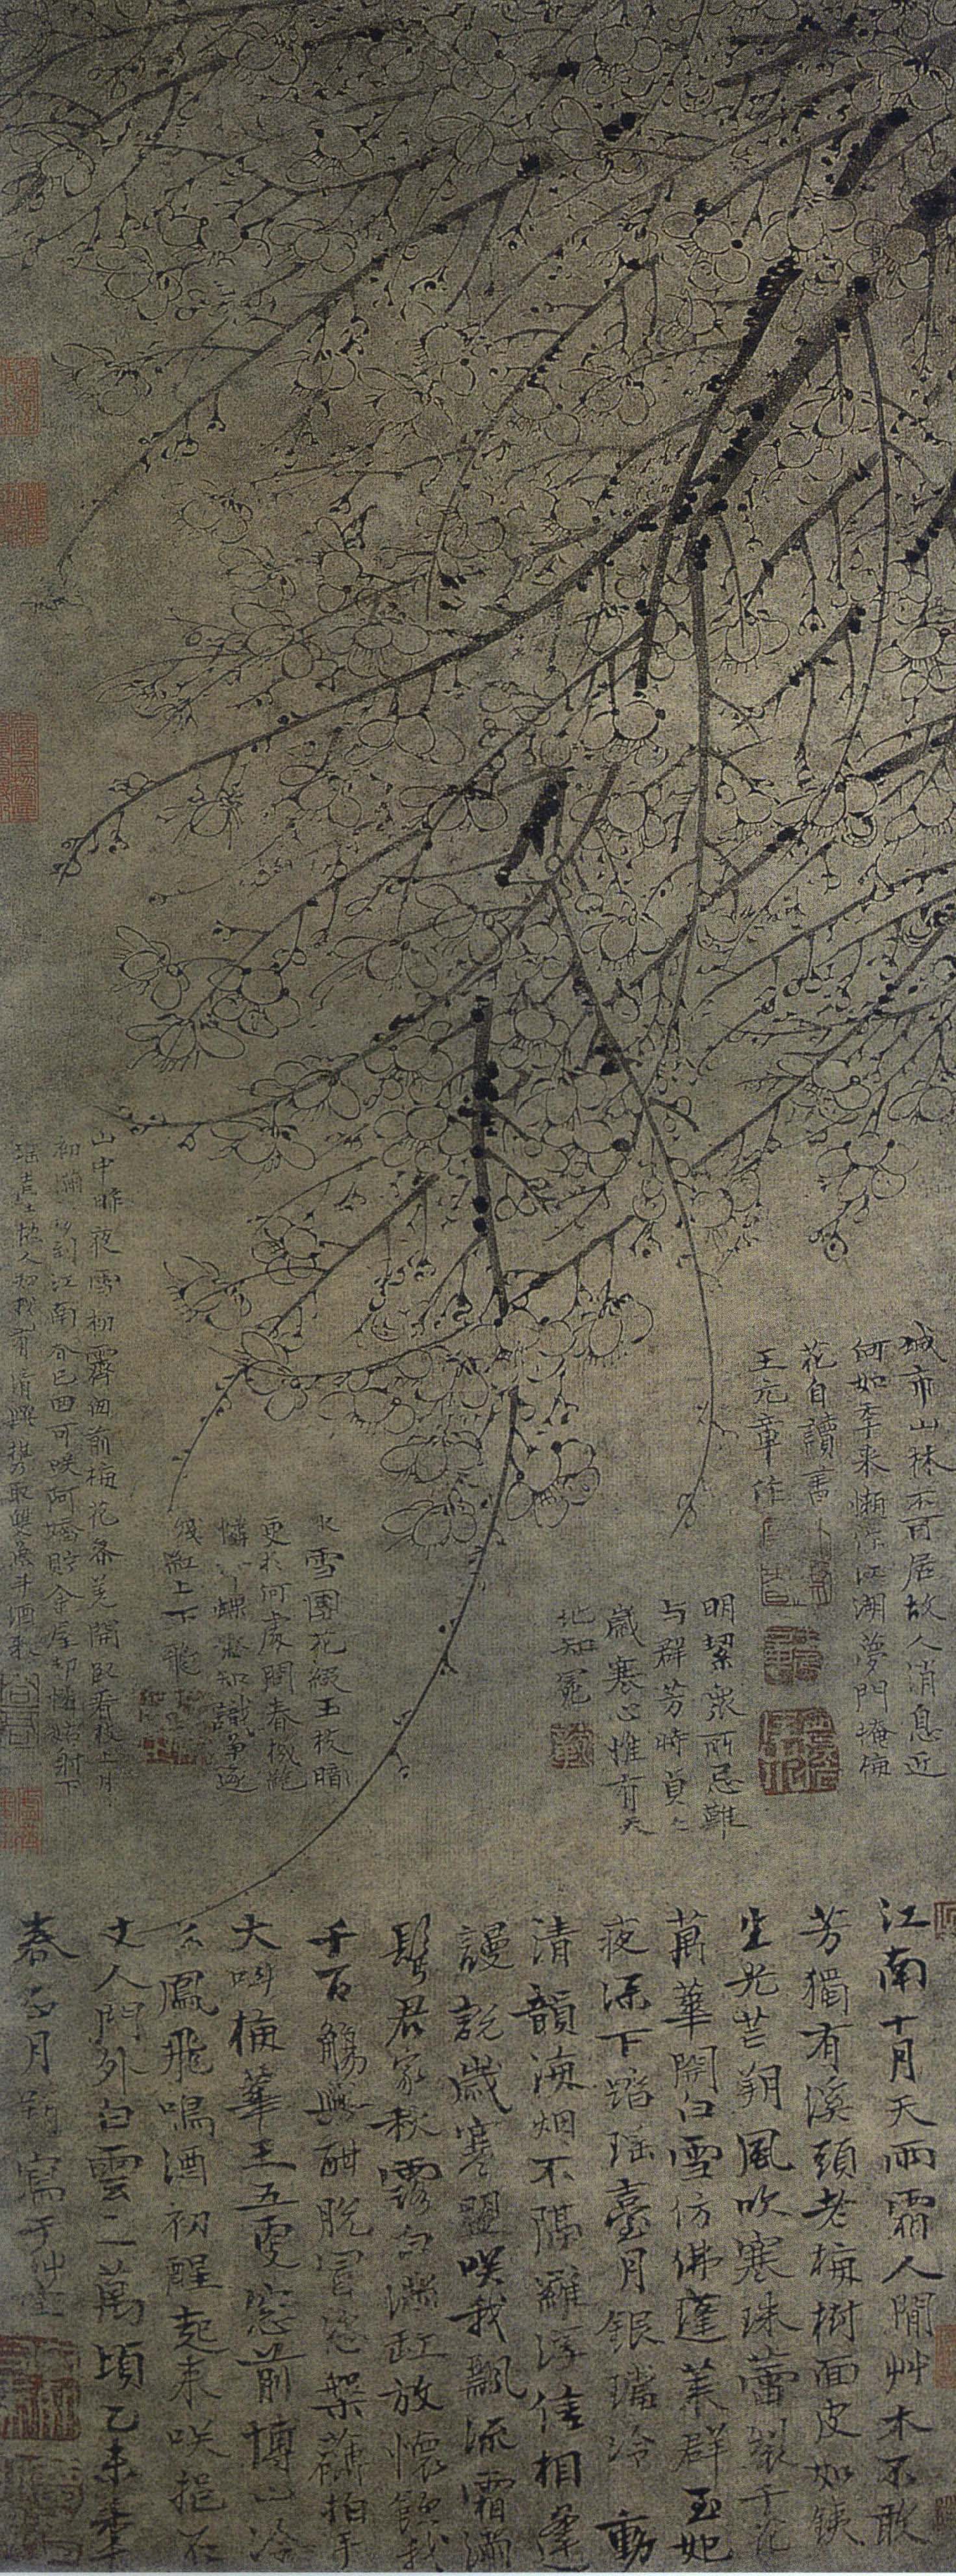 城市山林不可居故人消息近
何如年來懶作江湖夢門掩梅
花自讀書
王元章作
明潔衆所忌難
与群芳時貞〻
歲寒心惟有天
地知冕
冰雪團花綴玉枝暗
更於何處問春
憐蝶知識爭逐
殘紅上下飛
山中昨夜雪初霽前梅花參差開臥看枝上月
初滿到江南春已回可咲何貯金屋却憐姑射下
瑶故人知我有清興携取雙魚斗酒來
江南十月天雨霜人間艸木不敢
芳獨有溪頭老梅樹面皮如鐵
生光芒朔風吹寒珠蕾裂千花
萬華開白雪仿佛蓬萊群玉妃
夜深下踏瑶臺月銀璫泠動
清韻海烟不隔羅浮信相逢
謾說歲寒盟咲我飄流霜滿
鬢君家秋露白滿缸放懷飲我
千百觴興酣脫冒恣槃礴拍手
大叫梅華王五更窓前博山冷
么鳳飛鳴酒初醒起來咲挹石
丈人門外白雲二萬頃乙未年
春正月朔寫于